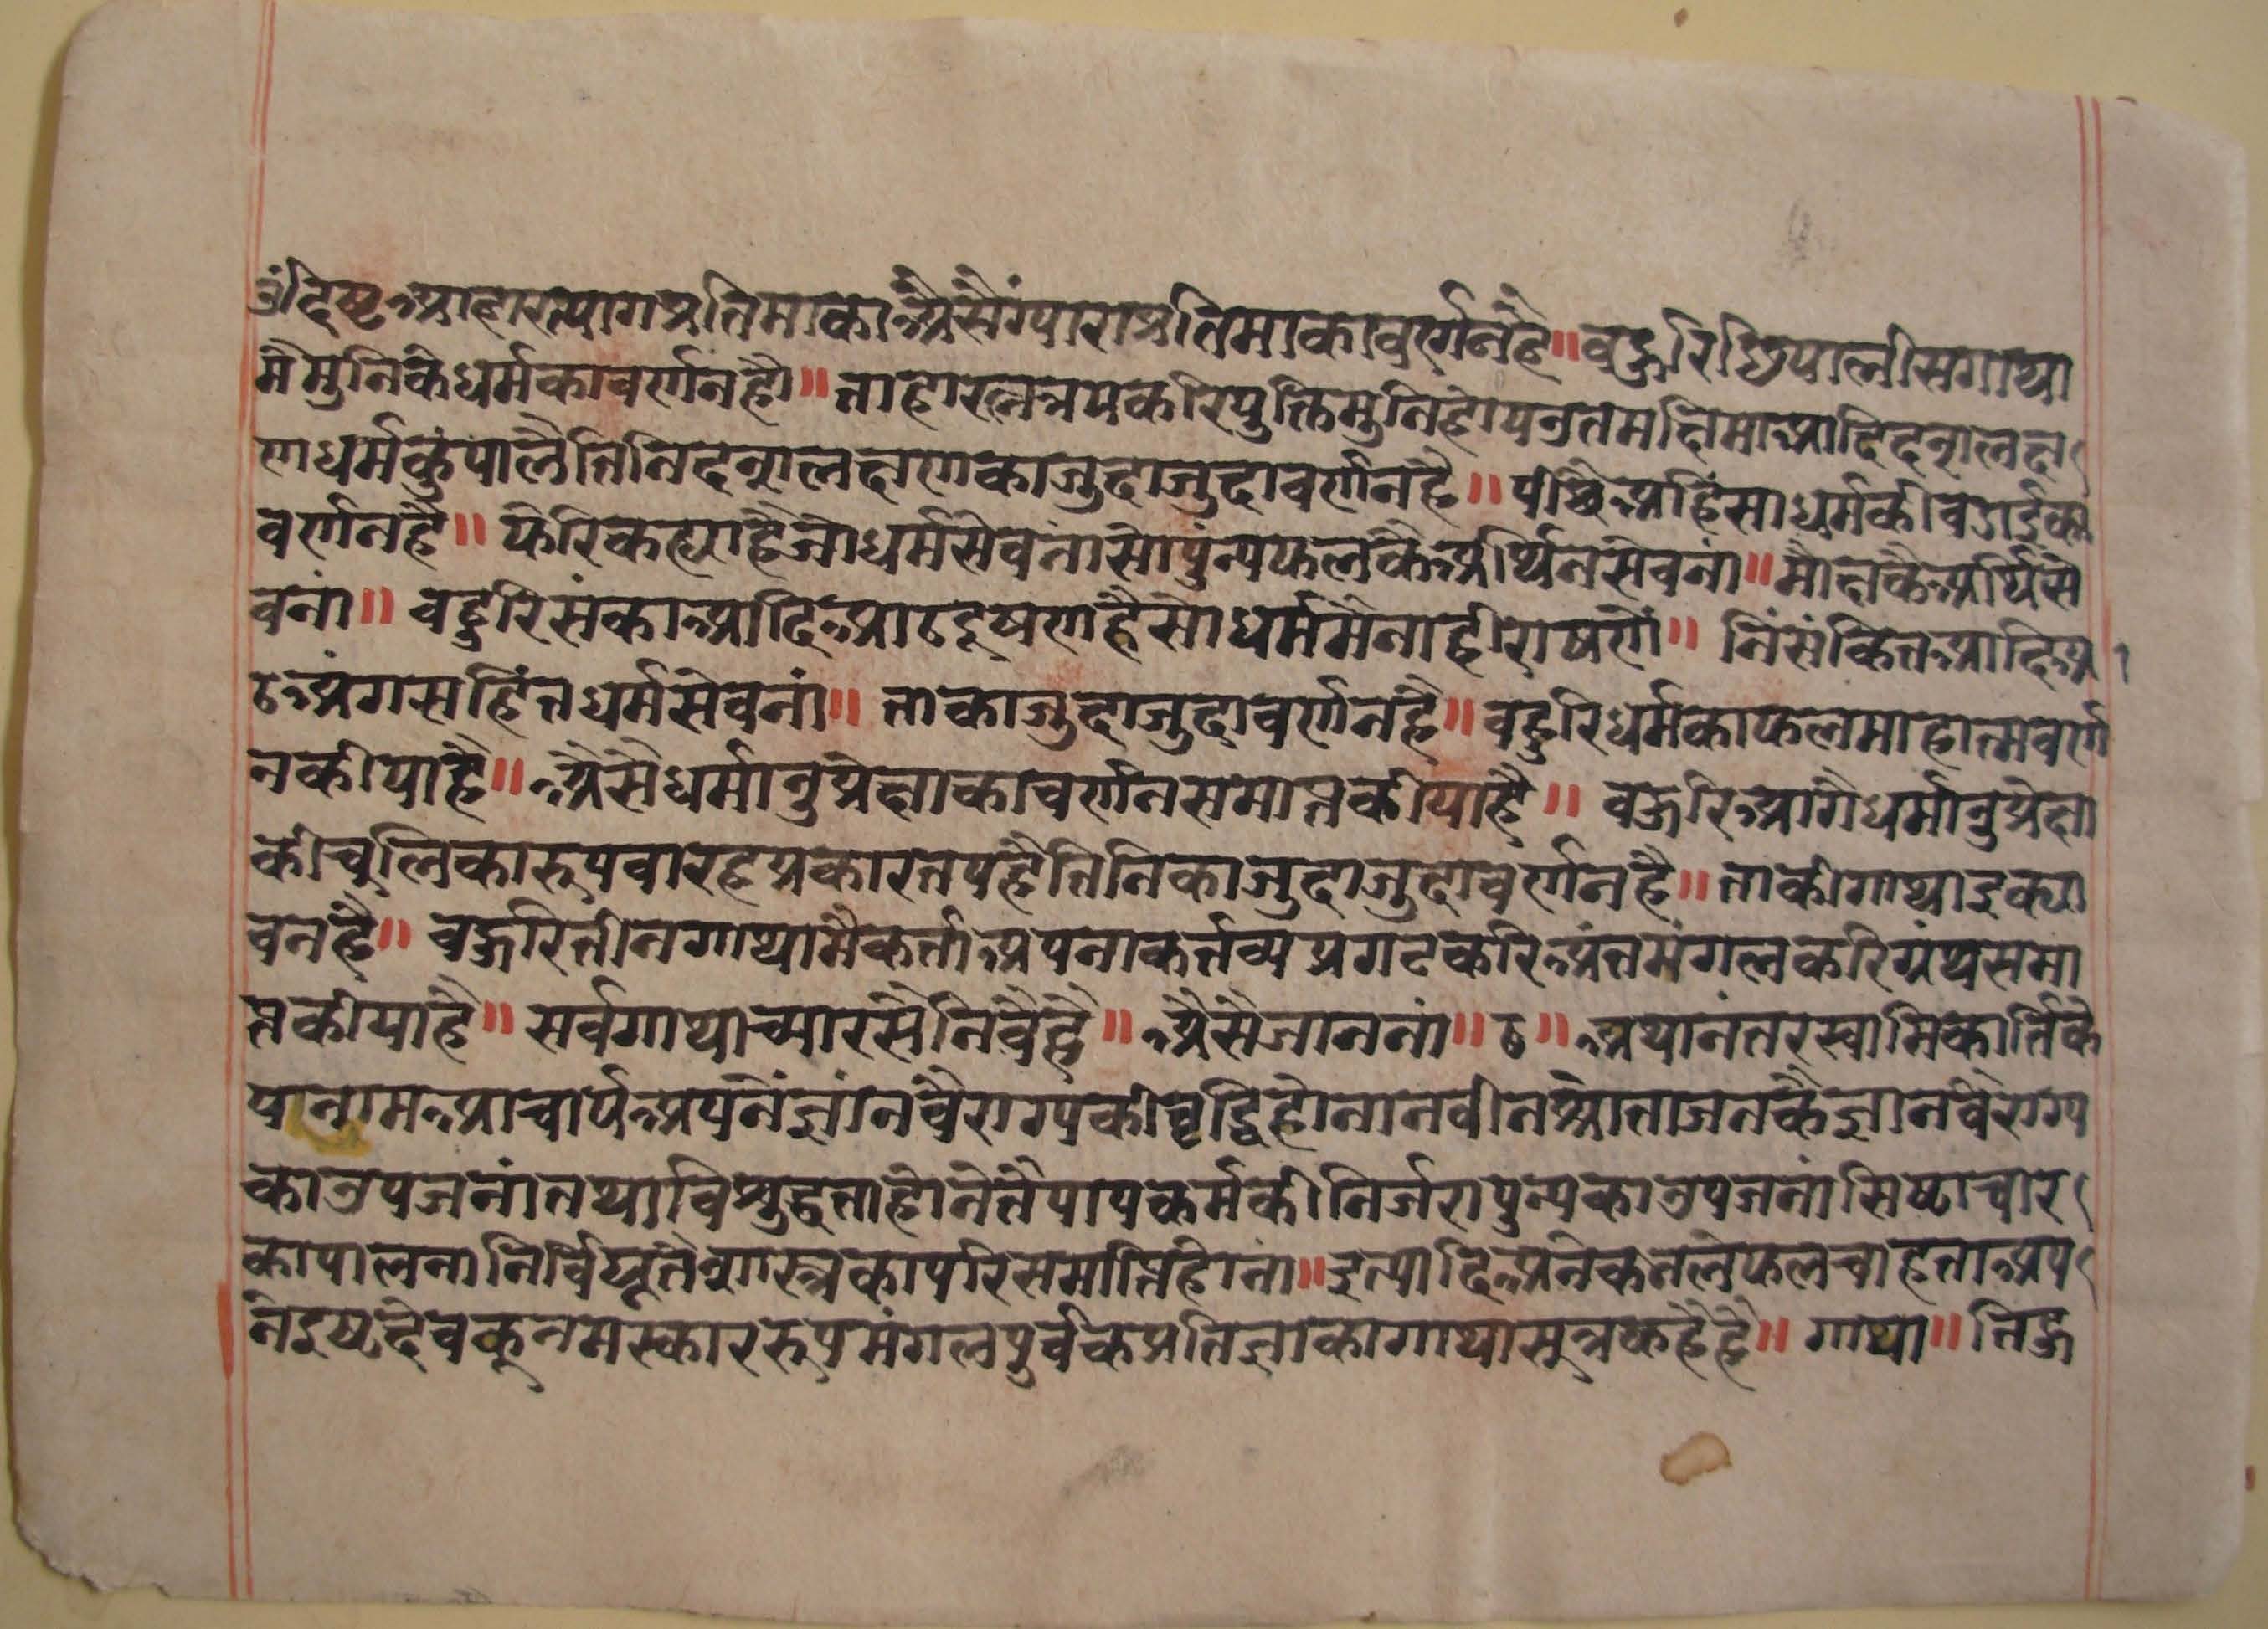 उंदिष्टआहारत्यागप्रतिमाका॥असैंग्यारा प्रतिमाकावर्णनहै॥ वहुरिछियालीसगाथा
मैमुनिकैधर्मकावर्णनहै॥ ताहारत्नत्रयकरियुक्तिमुनिहोयउत्तमक्षिमाआदिदशलक्ष
णधर्मकुंपालैतिनिदशलक्षणकाजुदाजुदावर्णनहै॥ पीछैअहिंसाधर्मकीवडाईका
वर्णनहै॥ फेरिकह्याहैजोधर्मसेवनांसोपुंन्यफलकैअर्थिनसेवनां॥ मोक्षकैअर्थिसे
वनां॥ वहुरिसंकाआदिआठदूषणहैसोधर्ममैनाहीराषणें॥ निंसंकितआदिअ
ठअंगसहिंतधर्मसेवनां॥ ताकाजुदाजुदावर्णनहै॥ वहुरिधर्मकाफलमाहात्मवर्ण
नकीयाहै॥ अैसैधर्मानुप्रेक्षाकावर्णनसमाप्तकीयाहै॥ वहुरिआगैधर्मानुप्रेक्षा
कीचुलिकारुपवारहप्रकारतपहैतिनिकाजुदाजुदावर्णनहै॥ ताकीगाथाइक्या
वनहै॥ वहुरितीनगाथामैकर्ताअपनाकर्तव्यप्रगटकरिअंतमंगलकरिग्रंथसमा
प्तकीयाहै॥ सर्वगाथाच्यारसैनिवैहै॥ अैसैजाननां॥ ठ॥ अथानंतरस्वामिकार्तिकै
यानामआचार्यअपनेंज्ञांनवैराग्यकीवृद्धिहोनानवीनश्रोताजनकैज्ञानवैराग्य
काउपजनांतथाविशुद्धताहोनेतैपापकर्मकीनिर्जरापुन्यकाउपजनांसिष्टाचार
कापालनानिर्विघ्नतैशास्त्रकापरिसमाप्तिहोनां॥ इत्यादिअनेकभलेफलचाहताअप
नेइष्टदेवकूनमस्काररुपमंगलपुर्वकप्रतिज्ञाकागाथासुत्रकहैहै॥ गाथा॥ तिहु